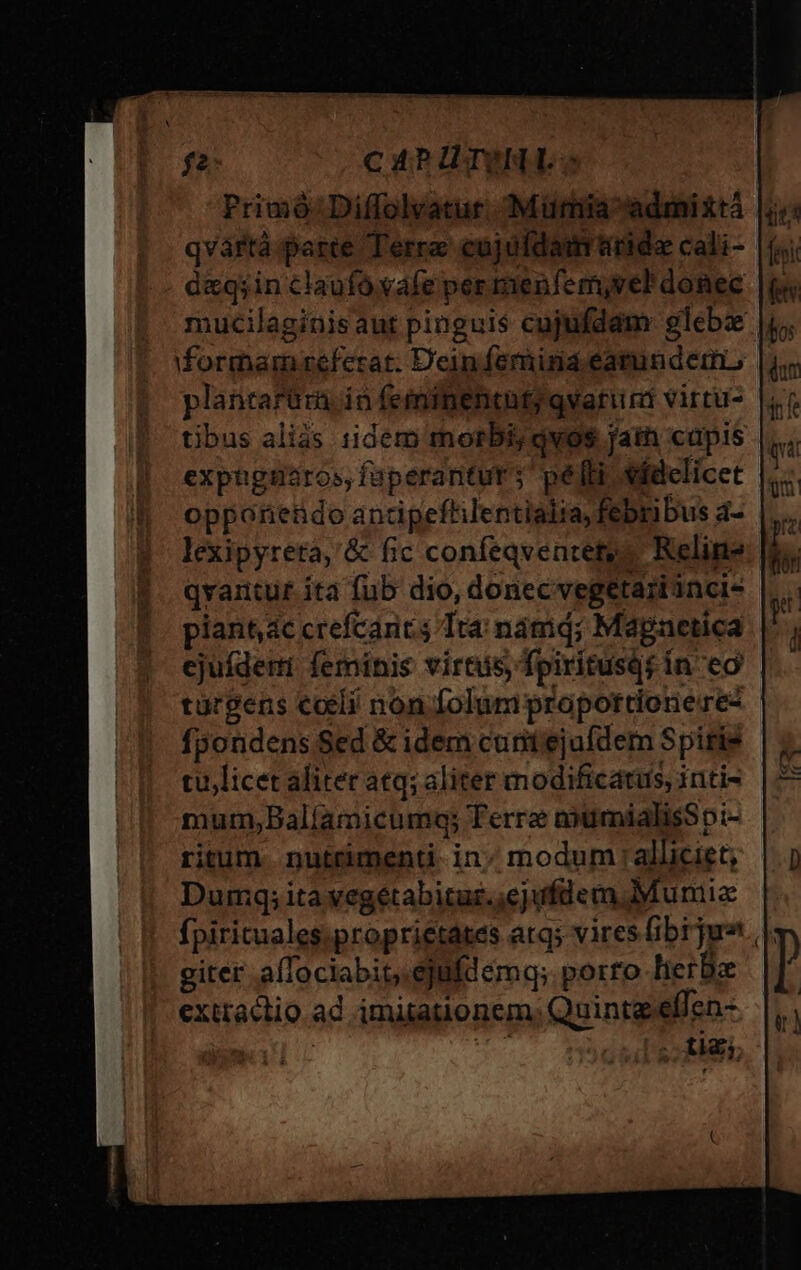 52 CAPUT
Primò Dissolvatur Mumia admixtâ
qvartâ parte Terræ cujusdam aridæ cali-
dæq; in clauso vase per mensem, vel donec
mucilaginis aut pinguis cujusdam glebæ
formam referat. Dein semina earundem
plantarum in seminentur, qvarum virtu-
tibus aliàs iidem morbi, qvos jam cupis
expugnatos, superantur; pesti videlicet
opponendo antipestilentialia, febribus a-
lexipyreta, & sic conseqventer. Relin-
qvantur ita sub dio, donec vegetari inci-
piant, ac crescant; Ita namq; Magnetica
ejusdem seminis virtus, spiritusq; in eo
turgens cœli non solùm proportione re-
spondens Sed & idem cum ejusdem Spiri-
tu, licet aliter atq; aliter modificatus, inti-
mum, Balsamicumq; Terræ mumialis Spi-
ritum nutrimenti in modum alliciet,
Dumq; ita vegetabitur, ejusdem Mumiæ
spirituales proprietates atq; vires sibi ju-
giter associabit, ejusdemq; porro herbæ
extractio ad imitationem Quintæ essen-
tiæ,